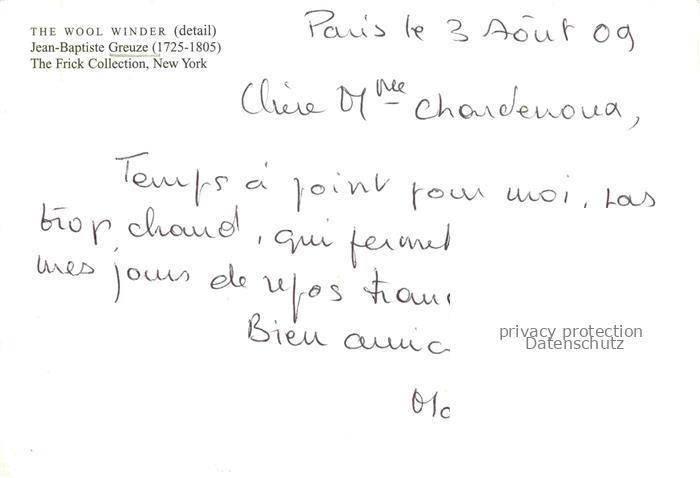 THE WOOL WINDER (detail)
Jean-Baptiste Greuze (1725-1805)
The Frick Collection, New York
Paris le 3 Août 09
Chère Mme Chardenoua,
Temps à point pour moi, pas
trop chaud, qui permet
mes jours de repos
Bien
privacy protection
Datenschutz